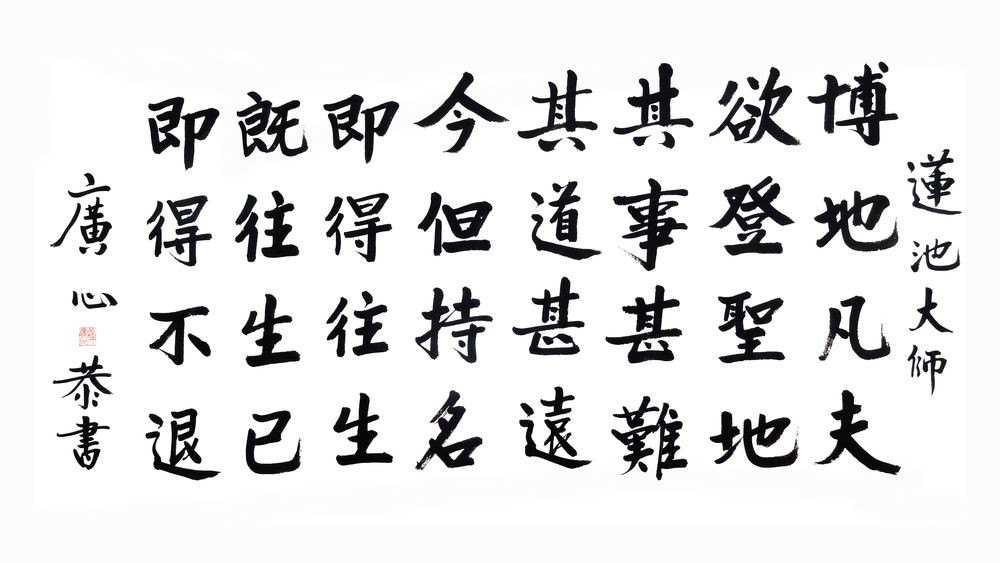 蓮池大師
博地凡夫
欲登聖地
其事甚難
其道甚遠
今但持名
即得往生
既往生已
即得不退
廣心恭書